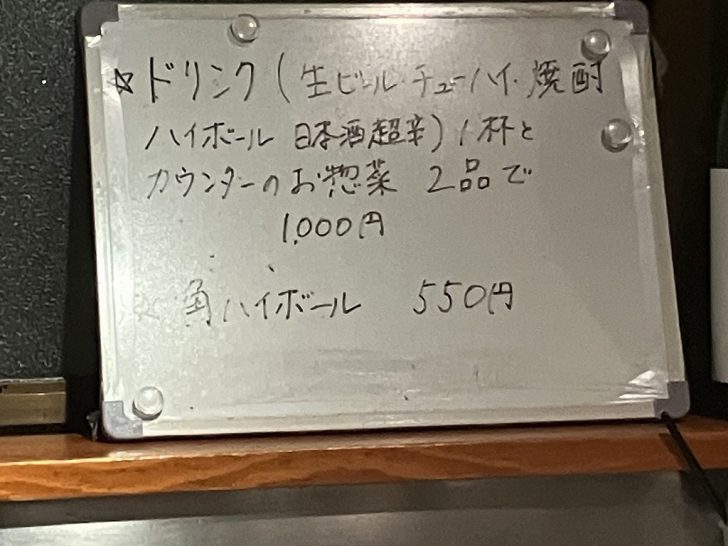 ☆ドリンク(生ビール・チューハイ・焼酎
ハイボール 日本酒超辛)1杯と
カウンターのお惣菜 2品で
1,000円
角ハイボール 550円